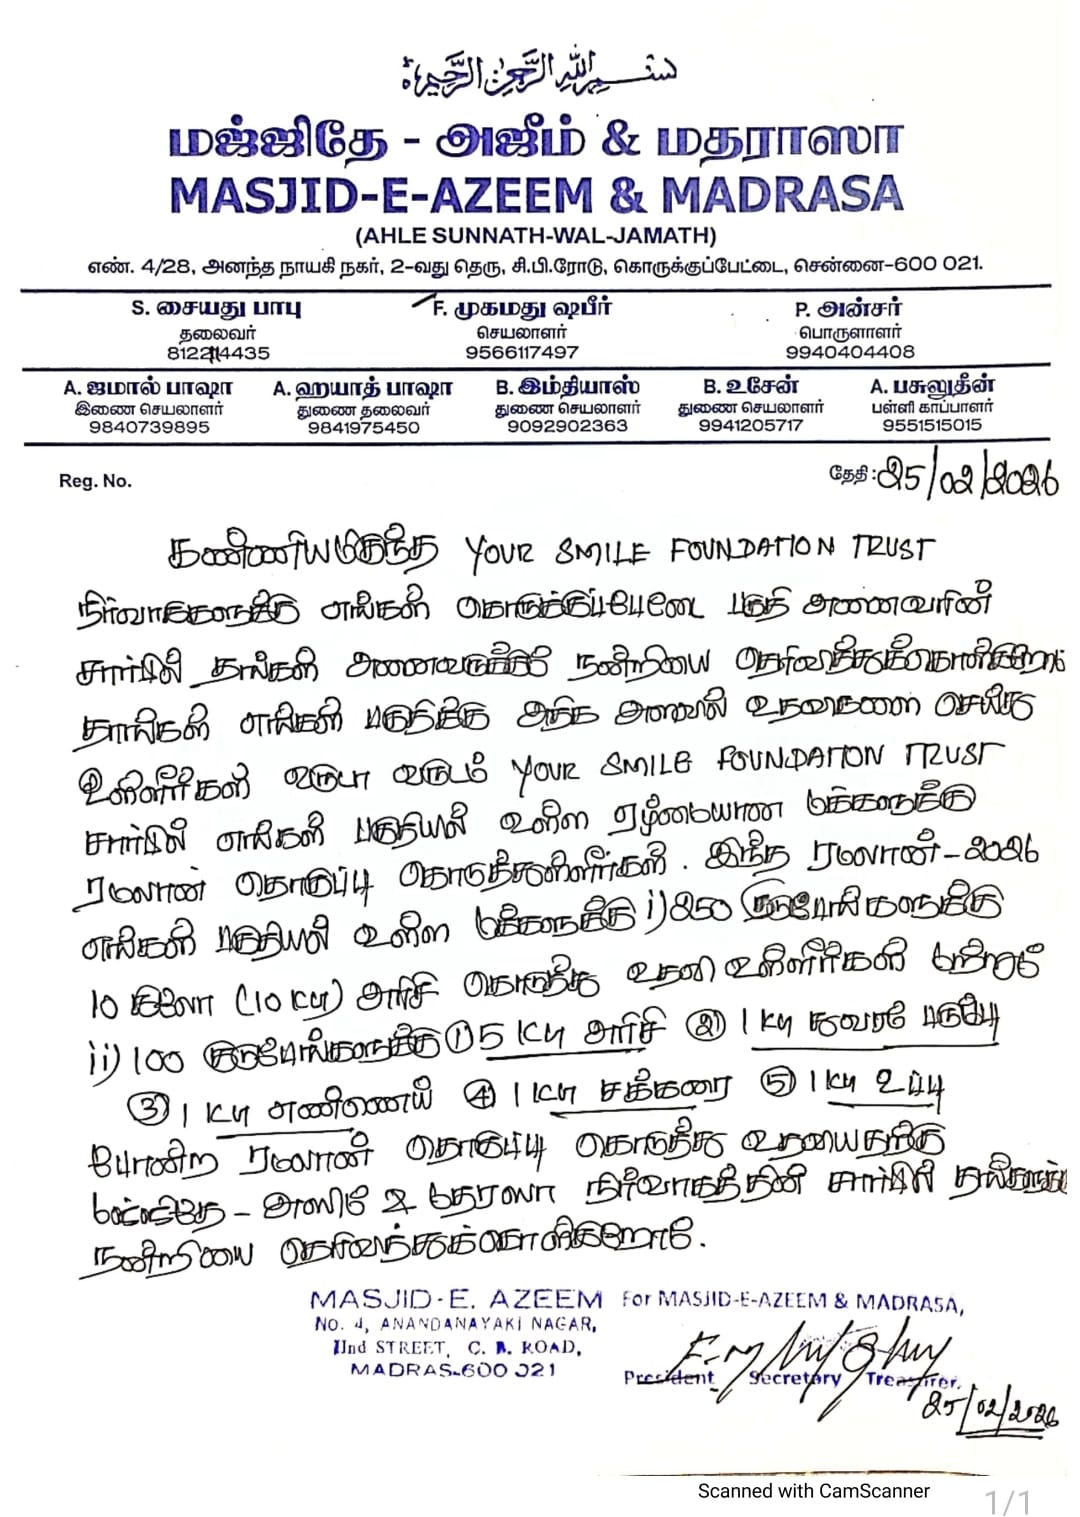 بسم الله الرحمن الرحيم
மஜ்ஜிதே - அஜீம் & மதராஸா
MASJID-E-AZEEM & MADRASA
(AHLE SUNNATH-WAL-JAMATH)
எண். 4/28, அனந்த நாயகி நகர், 2-வது தெரு, சி.பி.ரோடு, கொருக்குப்பேட்டை, சென்னை-600 021.
S. சையது பாபு F. முகமது ஷபீர் P. அன்சர்
தலைவர் செயலாளர் பொருளாளர்
8122114435 9566117497 9940404408
A. ஜமால் பாஷா A. ஹயாத் பாஷா B. இம்தியாஸ் B. உசேன் A. பசுலுதீன்
இணை செயலாளர் துணை தலைவர் துணை செயலாளர் துணை செயலாளர் பள்ளி காப்பாளர்
9840739895 9841975450 9092902363 9941205717 9551515015
Reg. No. தேதி: 25/02/2026
கண்ணியமிகுந்த YOUR SMILE FOUNDATION TRUST
நிர்வாகிகளுக்கு எங்கள் கொருக்குப்பேட்டை பகுதி அனைவரின்
சார்பில் தங்கள் அனைவருக்கும் நன்றியை தெரிவித்துக்கொள்கிறோம்
தாங்கள் எங்கள் பகுதிக்கு அந்த அளவில் உதவிகளை செய்து
உள்ளீர்கள் வருடா வருடம் YOUR SMILE FOUNDATION TRUST
சார்பில் எங்கள் பகுதியில் உள்ள ஏழ்மையான மக்களுக்கு
ரமலான் தொகுப்பு கொடுத்துள்ளீர்கள். இந்த ரமலான்-2026
எங்கள் பகுதியில் உள்ள மக்களுக்கு i) 250 குடும்பங்களுக்கு
10 கிலோ (10 KG) அரிசி கொடுத்து உதவி உள்ளீர்கள் மற்றும்
ii) 100 குடும்பங்களுக்கு ① 5 KG அரிசி ② 1 KG துவரம் பருப்பு
③ 1 KG எண்ணெய் ④ 1 KG சக்கரை ⑤ 1 KG உப்பு
போன்ற ரமலான் தொகுப்பு கொடுத்து உதவியதற்கு
மஸ்ஜிதே - அஜீம் & மதரஸா நிர்வாகத்தின் சார்பில் தங்களுக்கு
நன்றியை தெரிவித்துக்கொள்கிறோம்.
MASJID-E. AZEEM For MASJID-E-AZEEM & MADRASA,
No. 4, ANANDANAYAKI NAGAR,
IInd STREET, C. B. ROAD,
MADRAS-600 021
President Secretary Treasurer.
25/02/2026
Scanned with CamScanner
1/1